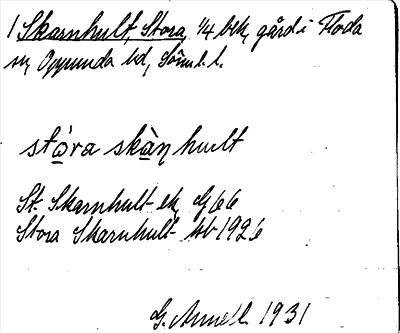 1 Skarnhult, Stora, 1/4 bek, gård i Floda
sn, Oppunda hd, Söml. l.
stòra skàṇhult
St. Skarnhult ek, G 66
Stora Skarnhult kb 1926
G. 1931